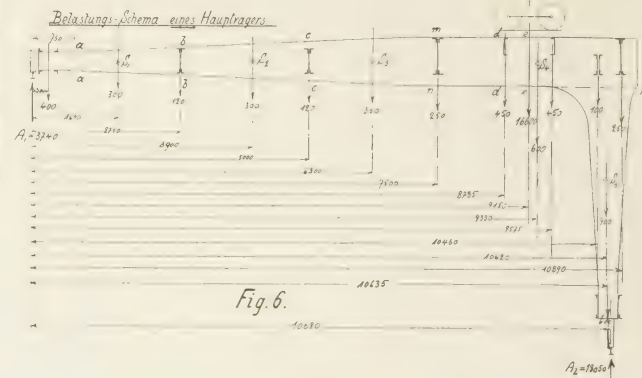 Belastungs-Schema eines Hauptträgers
750
a b c m d e
S₂ S₃
a b c n d e
400 300 120 300 120 300 250 450 16600 450 100 250
600
A₁=3740
2750
3900
5000
6300
7500
8735
9150
9330
9575
10460
10620
10890
10635
Fig. 6.
10680
A₂=18050